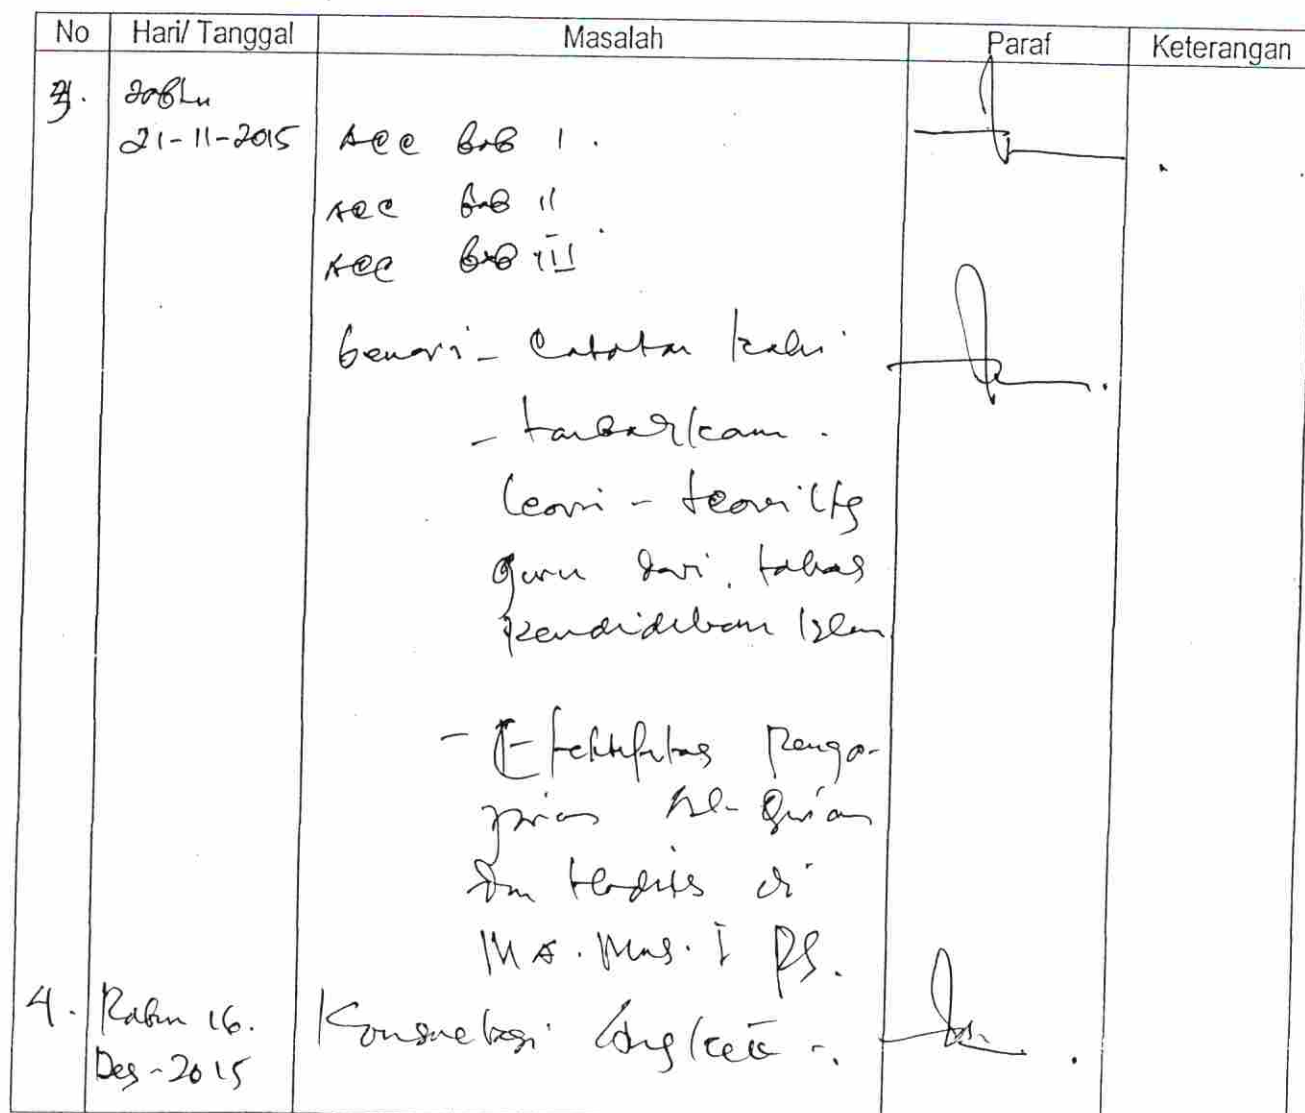 No Hari/ Tanggal Masalah Paraf Keterangan
3. Sabtu
21-11-2015 Acc bab I.
Acc bab II
Acc bab III
- Catatan kaki
- tambahkan
teori - teori ttg
guru dari
pendidikan Islam
- Efektifitas Penga-
jaran Al-Qur'an
dan Hadits di
MA. Mus. I
4. Rabu 16. Konsultasi
Des-2015